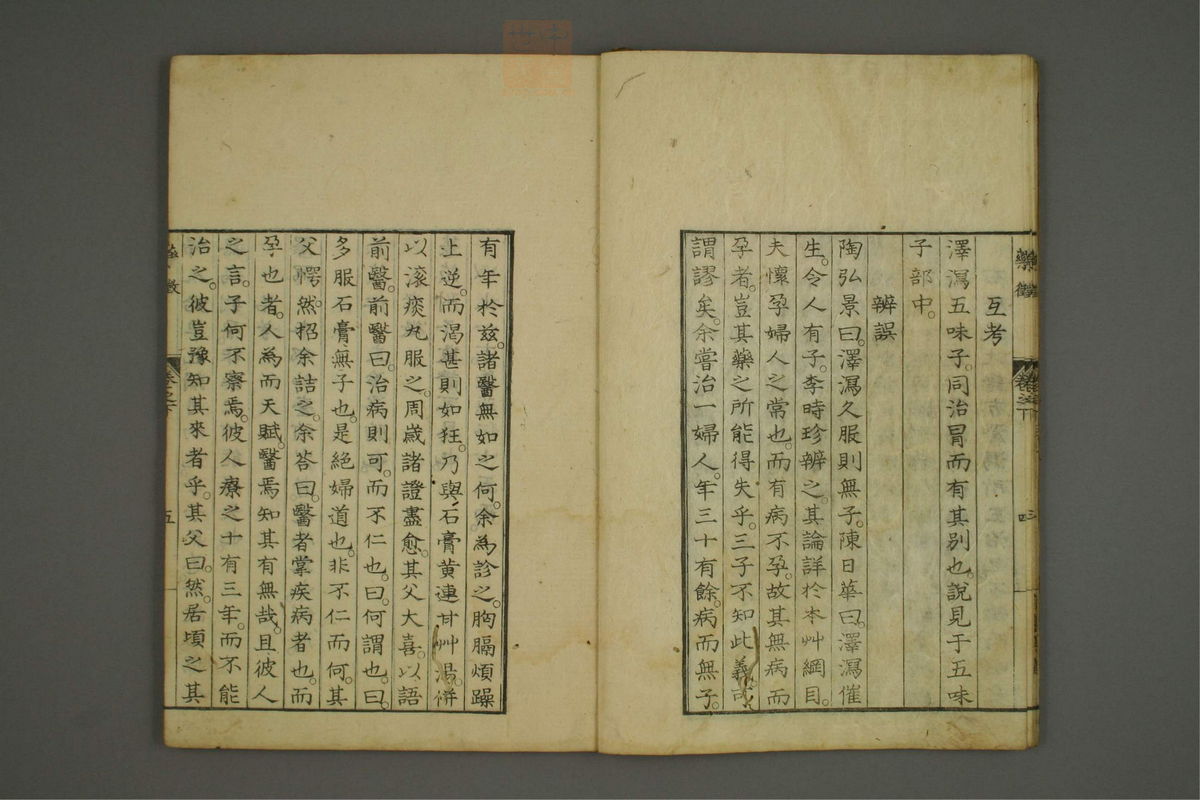 藥徵
卷之下
互考
澤瀉五味子。同治冒而有其別也。說見于五味
子部中。
辨誤
陶弘景曰。澤瀉久服則無子。陳日華曰。澤瀉催
生。令人有子。李時珍辨之。其論詳於本艸綱目。
夫懷孕婦人之常也。而有病不孕。故其無病而
孕者。豈其藥之所能得失乎。三子不知此義可
謂謬矣。余嘗治一婦人。年三十有餘。病而無子。
有年於茲。諸醫無如之何。余為診之。胸膈煩躁
上逆。而渴甚則如狂。乃與石膏黃連甘艸湯。併
以滾痰丸服之。周歲諸證盡愈。其父大喜。以語
前醫。前醫曰。治病則可。而不仁也。曰。何謂也。曰。
多服石膏無子也。是絕婦道也。非不仁而何。其
父愕。然招余詰之。余答曰。醫者掌疾病者也。而
孕也者。人為而天賦。醫焉知其有無哉。且彼人
之言。子何不察焉。彼人療之十有三年。而不能
治之。彼豈豫知其來者乎。其父曰。然。居頃之其
卷之下
五